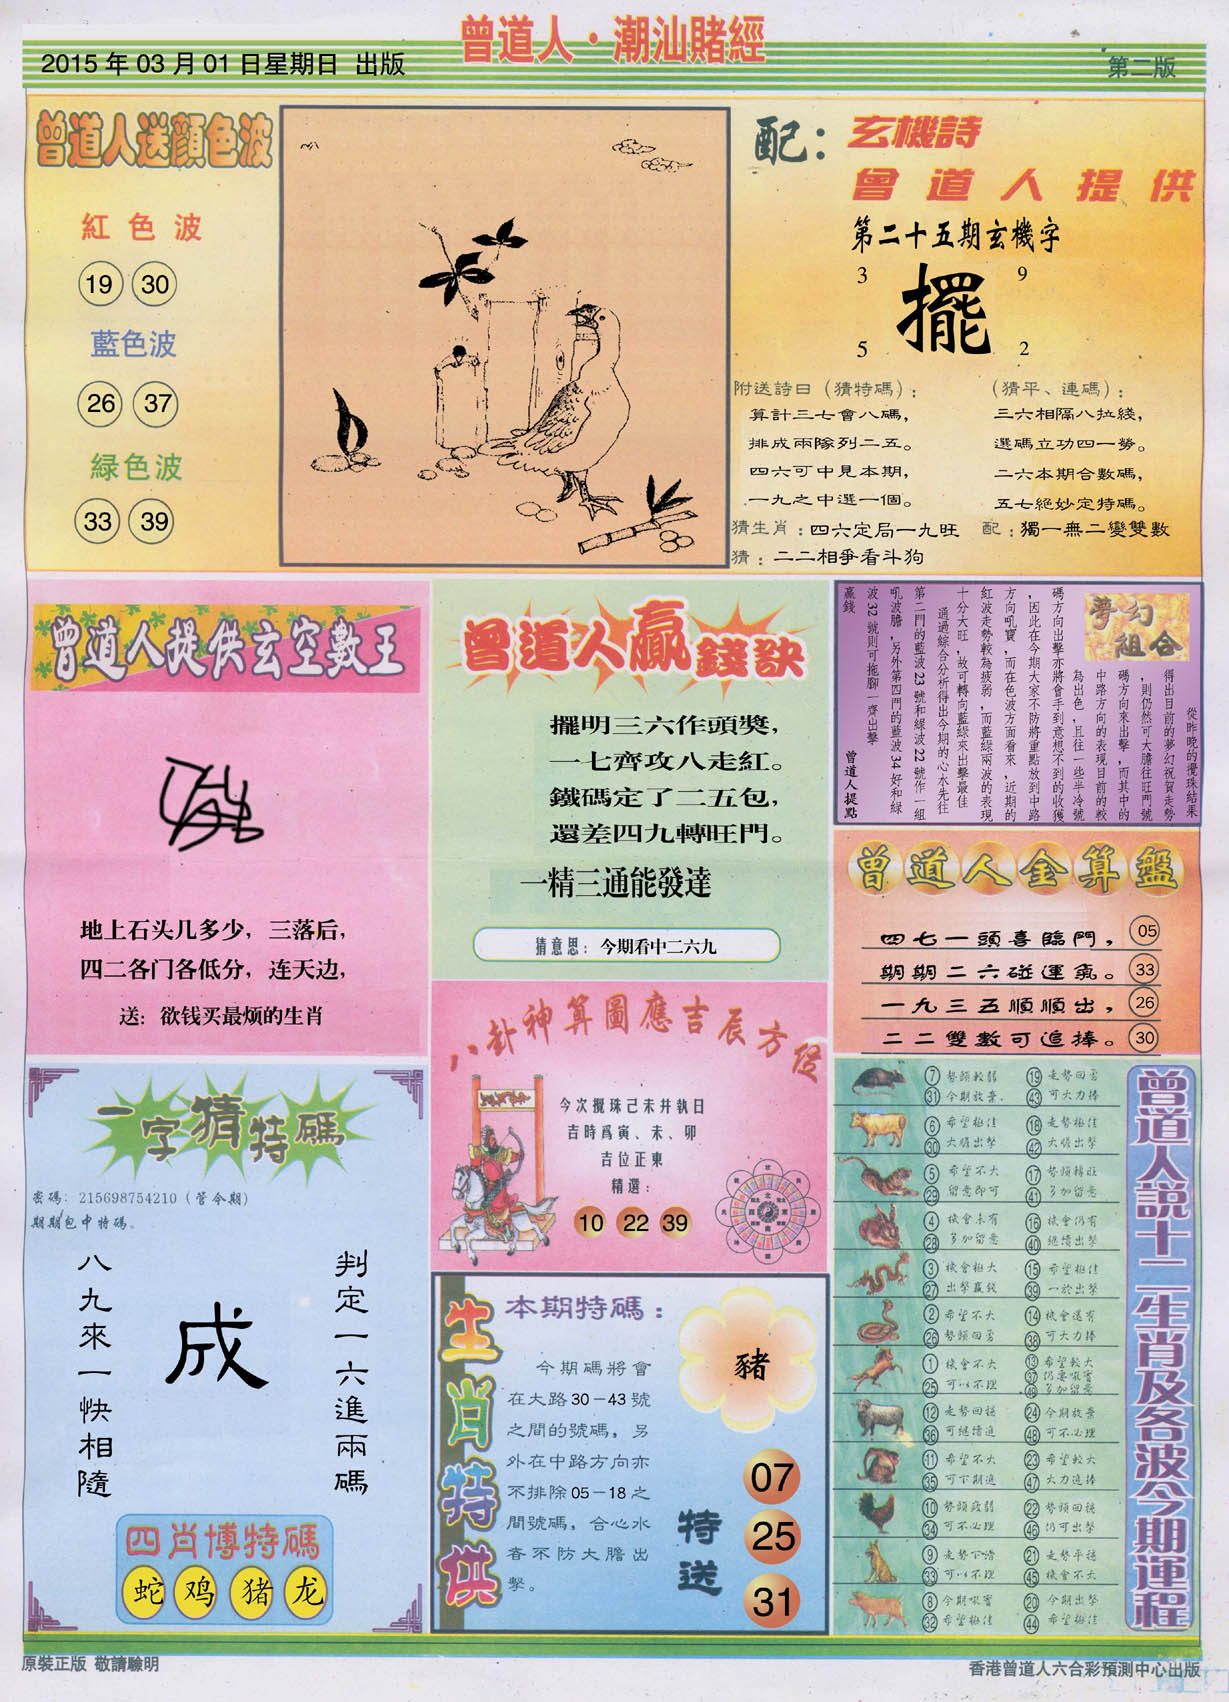 曾道人·潮汕賭經
2015 年 03 月 01 日星期日 出版
第二版
曾道人送顏色波
紅色波
19 30
藍色波
26 37
緑色波
33 39
配：
玄機詩
曾道人提供
第二十五期玄機字
3 9
擺
5 2
附送詩曰（猜特碼）：
算計三七會八碼，
排成兩隊列二五。
四六可中見本期，
一九之中選一個。
（猜平、連碼）：
三六相隔八拉綫，
選碼立功四一勞。
二六本期合數碼，
五七絕妙定特碼。
猜生肖：四六定局一九旺
配：獨一無二變雙數
猜：二二相爭看斗狗
曾道人提供玄空數王
地上石头几多少，三落后，
四二各门各低分，连天边，
送：欲钱买最烦的生肖
曾道人贏錢訣
擺明三六作頭獎，
一七齊攻八走紅。
鐵碼定了二五包，
還差四九轉旺門。
一精三通能發達
猜意思：今期看中二六九
夢幻
組合
從昨晚的攪珠結果
得出目前的夢幻祝賀走勢
，則仍然可大膽往旺門號
碼方向來出擊，而其中的
中路方向的表現目前的較
為出色，且往一些半冷號
碼方向出擊亦將會手到意想不到的收獲
，因此在今期大家不防將重點放到中路
方向吼寶，而在色波方面看來，近期的
紅波走勢較為疲弱，而藍綠兩波的表現
十分大旺，故可轉向藍綠來出擊最佳
通過綜合分析得出今期的心水先往
第二門的藍波 23 號和綠波 22 號作一組
吼波膽，另外第四門的藍波 34 好和綠
波 32 號則可拖腳一齊出擊
贏錢
曾道人提點
曾道人金算盤
四七一頭喜臨門，05
期期二六碰運氣。33
一九三五順順出，26
二二雙數可追捧。30
八卦神算圖應吉辰方位
今次攪珠己未井執日
吉時爲寅、未、卯
吉位正東
精選：
10 22 39
一字猜特碼
密碼：215698754210（管今期）
期期包中特碼。
判定一六進兩碼
成
八九來一快相隨
四肖博特碼
蛇 鸡 猪 龙
生肖特供
本期特碼：
今期碼將會
在大路30－43號
之間的號碼，另
外在中路方向亦
不排除05－18之
間號碼，合心水
者不防大膽出
擊。
豬
特送
07
25
31
曾道人説十二生肖及各波今期運程
7 勢頭較弱 19 走勢回勇
31 今期放棄． 43 可大力捧
6 希望極佳 18 走勢極佳
30 大膽出擊 42 大膽出擊
5 希望不大 17 勢頭轉旺
29 留意即可 41 多加留意
4 機會未有 16 機會仍有
28 多加留意 40 繼續出擊
3 機會極大 15 希望極佳
27 出擊贏錢 39 一於出擊
2 希望不大 14 機會還有
26 勢頭回勇 38 可大力捧
1 機會不大 13 希望較大
25 可以不理 37 仍要吸寶
49 多加留意
12 走勢回穩 24 今期放棄
36 可繼續追 48 可不必理
11 希望不大 23 希望較大
35 可下期追 47 大力追捧
10 勢頭疲弱 22 勢頭回穩
34 可不必理 46 仍可出擊
9 走勢下滑 21 走勢平穩
33 可以不理 45 機會不大
8 今期吸寶 20 今期出擊
32 希望極佳 44 希望極佳
原裝正版 敬請驗明
香港曾道人六合彩預測中心出版